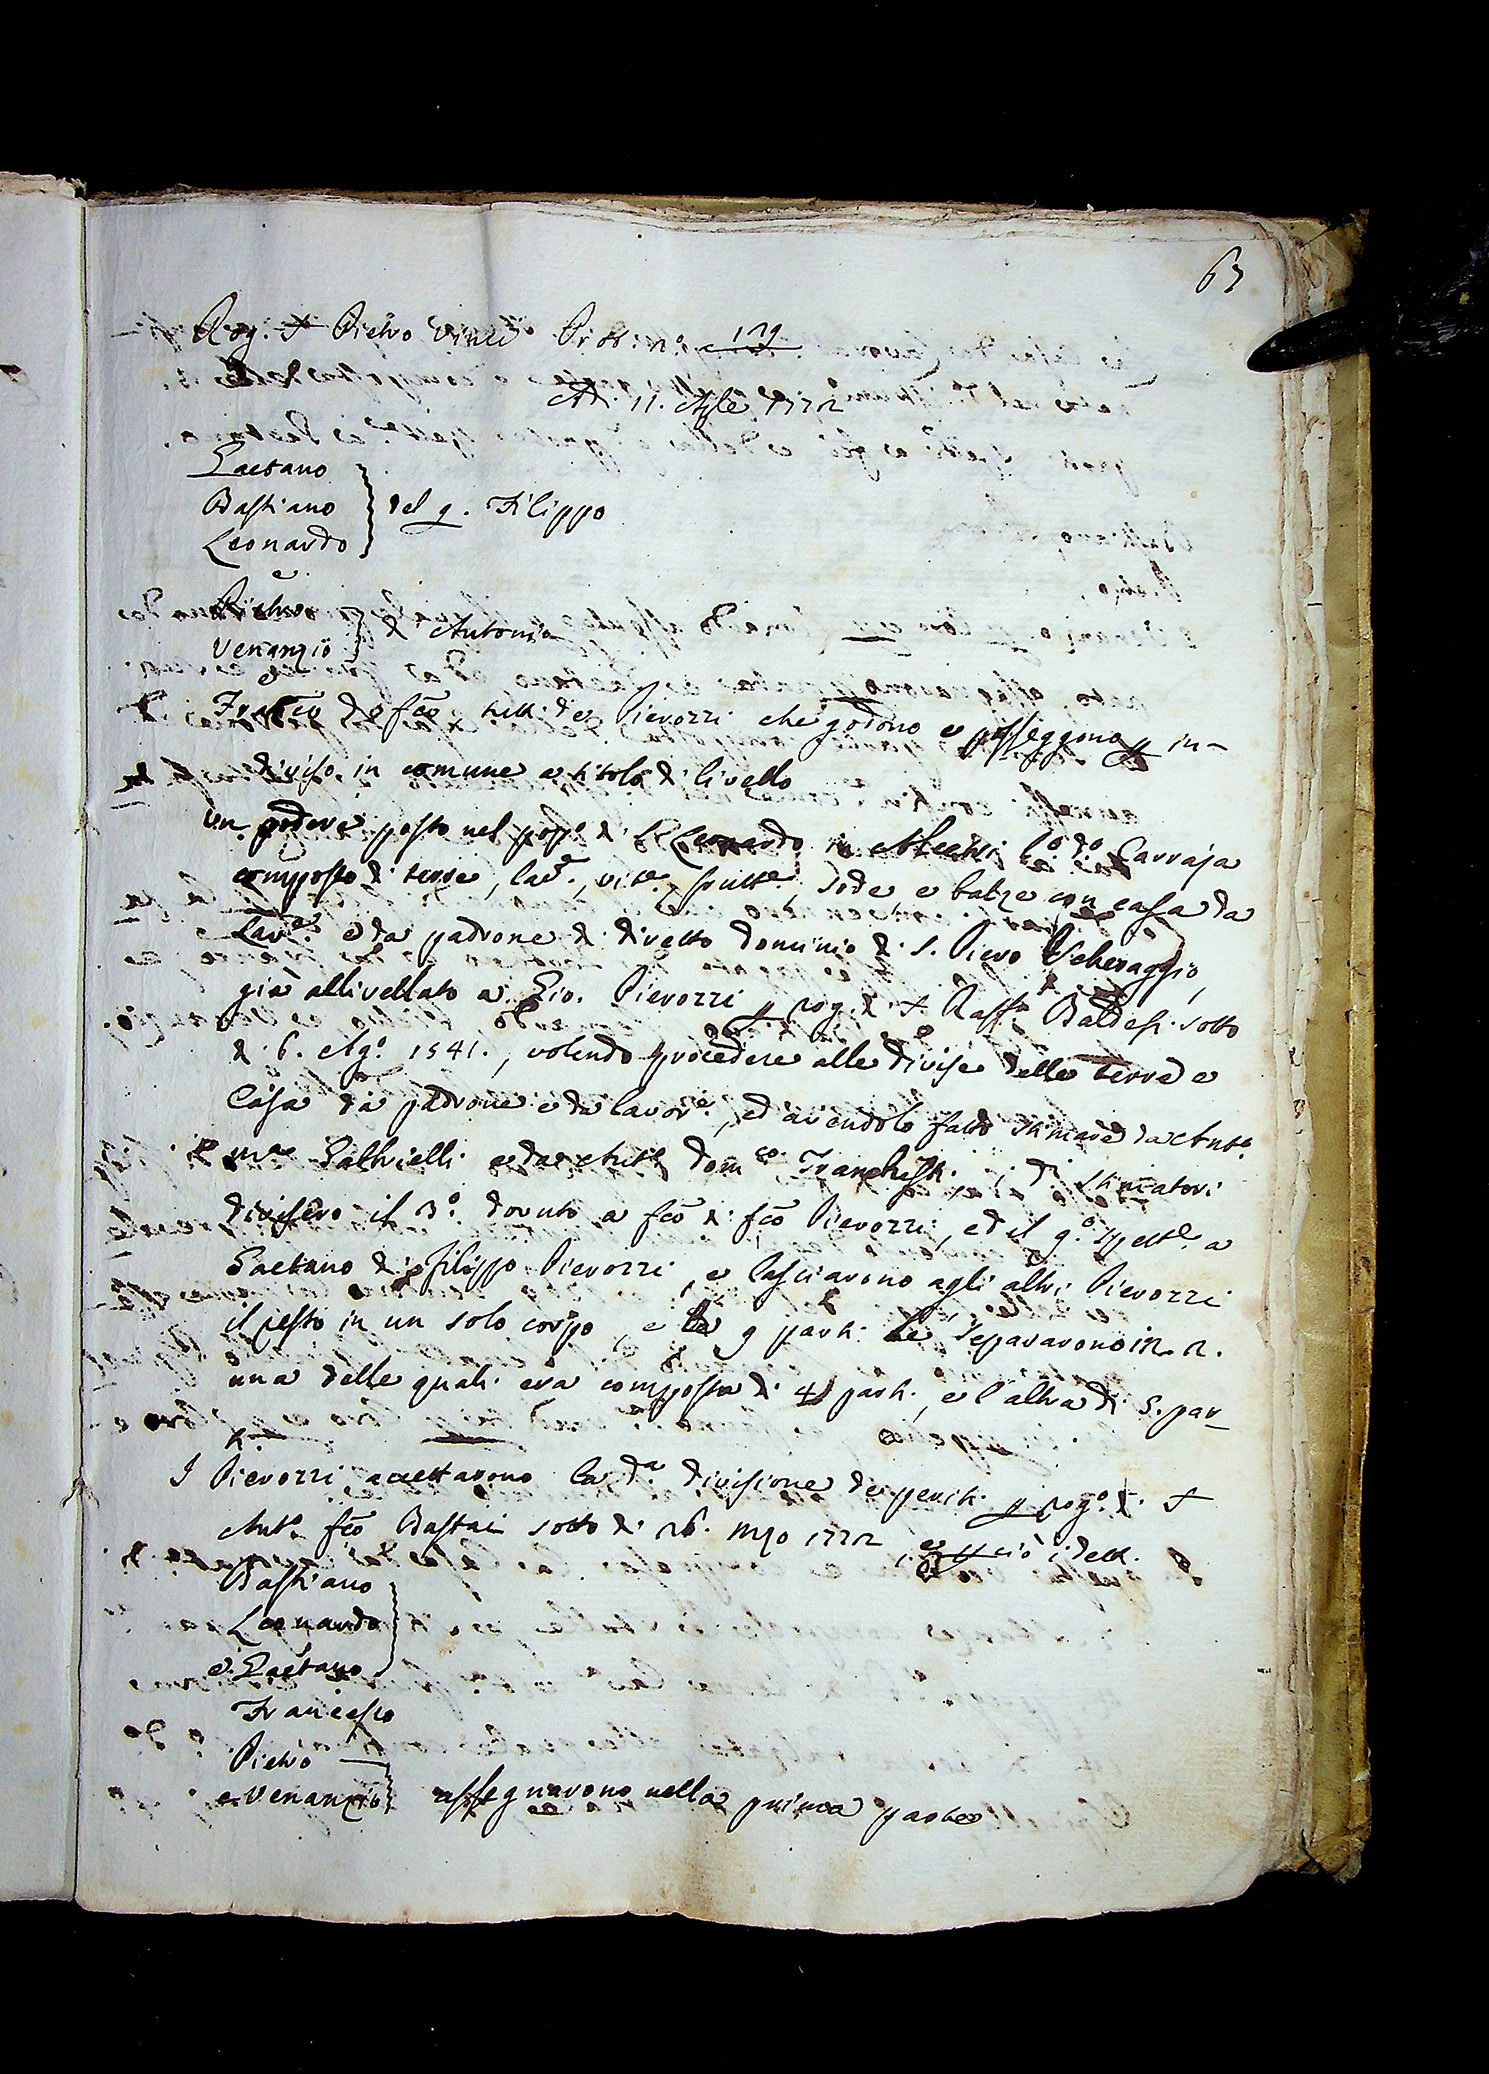 67
Rog. Pietro Vinci Prot: nº 129
Adi 11. Aple 1772
Gaetano
Bastiano } del q. Filippo
Leonardo
e
Pietro
Venanzio } di Antonio
e
Franco di fco tutti de Pierozzi che godono e posseggono p in-
diviso in comune a titolo di livello
Un podere posto nel popº di S. Leonardo in Arcetri lº dº Carraja
composto di terre, lave, vite frutte Sode e balze con casa da
Lave e da padrone di diretto dominio di S. Piero Scheraggio,
già allivellato a Gio. Pierozzi p rog. di Raffº Baldesi sotto
di 6. Agº 1541., volendo procedere alle divise delle terre e
Casa da padrone e da lavore, ed avendolo fatto stimare da Antº
Mª Galtrielli e da Antº Domco Franchesh. i di stimatori
divisero il 3º dovuto a fco di fco Pierozzi, ed il 9º spette a
Gaetano di Filippo Pierozzi, e lasciarono agli altri Pierozzi
il resto in un solo corpo, e le 9 parti le separarono in 2.
una delle quali era composta di 4 parti, e l'altra di 5. par-
ti.
I Pierozzi accettarono la dª divisione de periti p rogº di
Antº fco Bastai sotto di 26. Mzo 1772, e p ciò i dett.
Bastiano
Leonardo
e Gaetano
Francesco
Pietro
e Venanzio } assegnarono nella prima parte